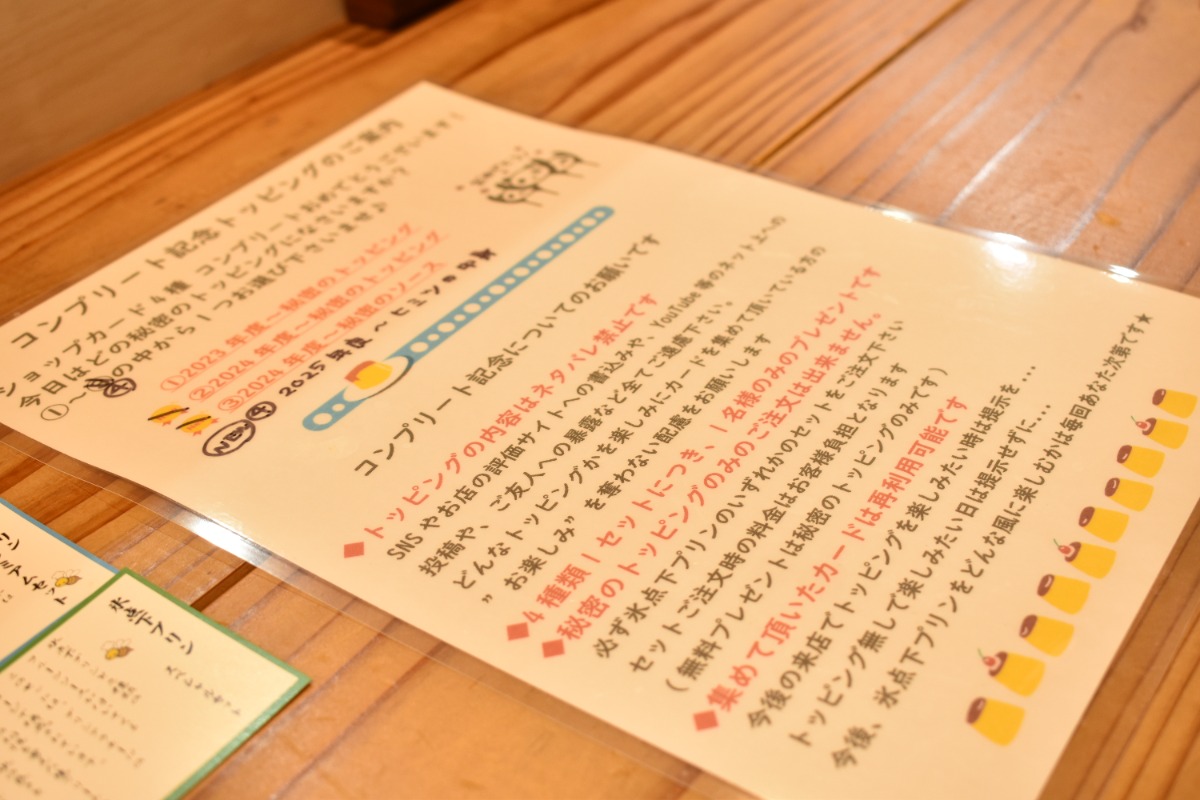 コンプリート記念トッピングのご案内
ショップカード4種 コンプリートおめでとうございます!
今日はどの秘密のトッピングになさいますか?
①~④の中から1つお選び下さいませ♪
①2023年度~秘密のトッピング
②2024年度~秘密のトッピング
③2024年度~秘密のソース
④2025年度~ヒミツの
コンプリート記念についてのお願いです
◆トッピングの内容はネタバレ禁止です
SNSやお店の評価サイトへの書込みや、YouTube等のネット上への
投稿や、ご友人への暴露など全てご遠慮下さい。
どんなトッピングかを楽しみにカードを集めて頂いている方の
”お楽しみ”を奪わない配慮をお願いします
◆4種類1セットにつき、1名様のみのプレゼントです
◆秘密のトッピングのみのご注文は出来ません。
必ず氷点下プリンのいずれかのセットをご注文下さい
セットご注文時の料金はお客様負担となります
(無料プレゼントは秘密のトッピングのみです)
◆集めて頂いたカードは再利用可能です
今後の来店でトッピングを楽しみたい時は提示を…
トッピング無しで楽しみたい日は提示せずに…
今後、氷点下プリンをどんな風に楽しむかは毎回あなた次第です★
氷点下プリン
スペシャルセット